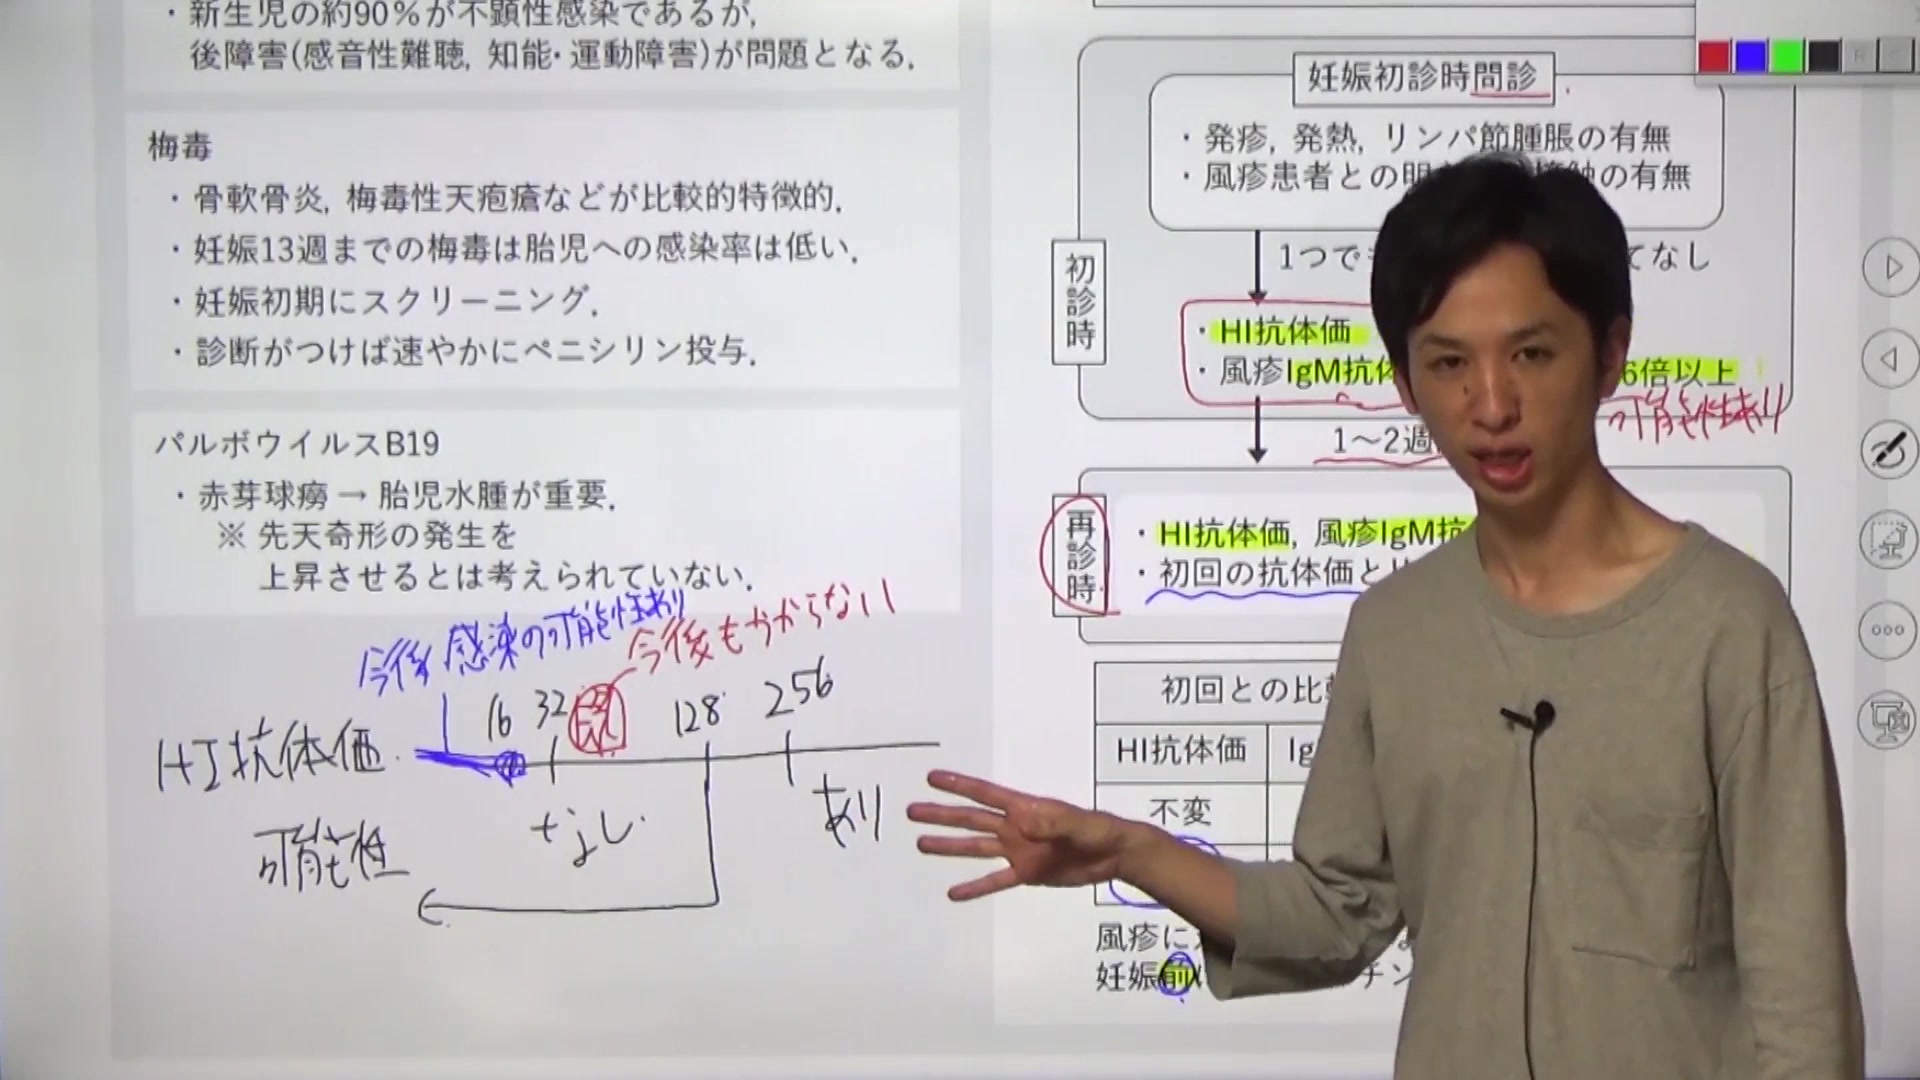 ・新生児の約90％が不顕性感染であるが,
後障害(感音性難聴, 知能・運動障害)が問題となる.
梅毒
・骨軟骨炎, 梅毒性天疱瘡などが比較的特徴的.
・妊娠13週までの梅毒は胎児への感染率は低い.
・妊娠初期にスクリーニング.
・診断がつけば速やかにペニシリン投与.
パルボウイルスB19
・赤芽球癆 → 胎児水腫が重要.
※ 先天奇形の発生を
上昇させるとは考えられていない.
今後感染の可能性あり
今後もかからない
16 32 128 256
HI抗体価
可能性 なし あり
妊娠初診時問診
・発疹, 発熱, リンパ節腫脹の有無
・風疹患者との明 接触の有無
初診時
1つで てなし
・HI抗体価
・風疹IgM抗体 6倍以上
可能性あり
1～2週
再診時
・HI抗体価, 風疹IgM抗
・初回の抗体価と
初回との比
HI抗体価 Ig
不変
風疹に
妊娠前 チン